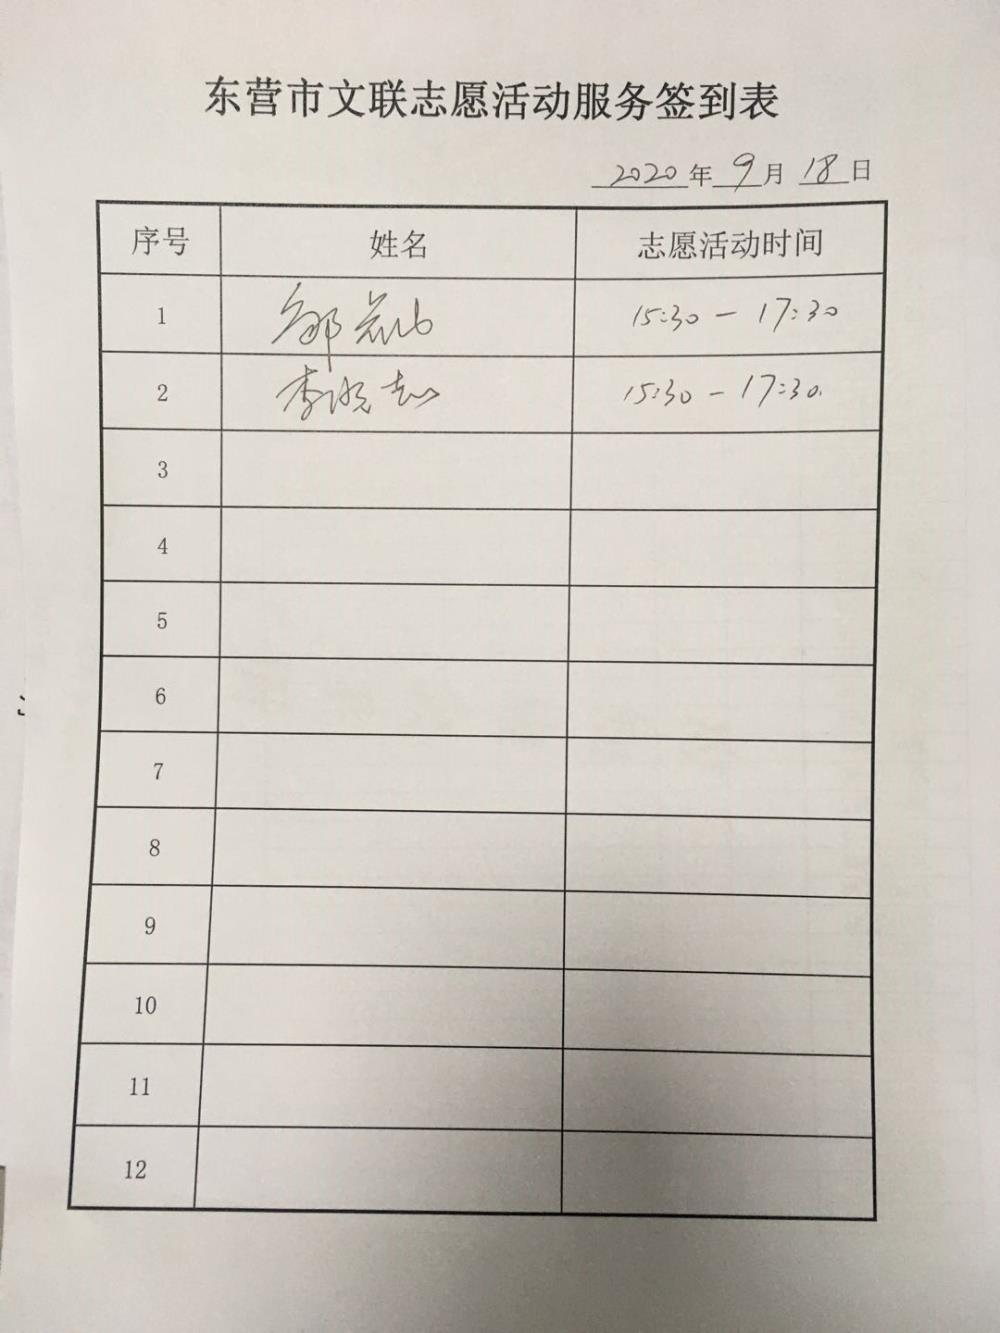 东营市文联志愿活动服务签到表
2020年9月18日
序号 姓名 志愿活动时间
1 15:30－17:30
2 李晓志 15:30－17:30
3
4
5
6
7
8
9
10
11
12